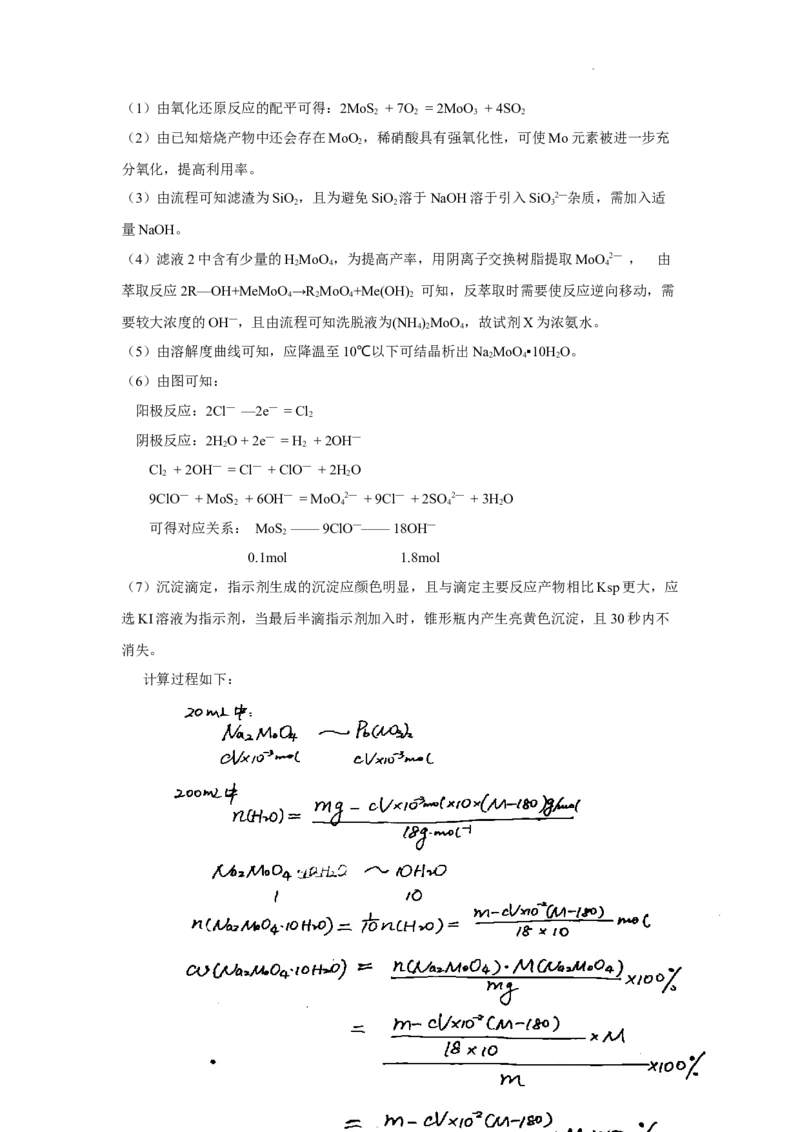 （1）由氧化还原反应的配平可得：2MoS₂ + 7O₂ = 2MoO₃ + 4SO₂
（2）由已知焙烧产物中还会存在MoO₂，稀硝酸具有强氧化性，可使Mo元素被进一步充
分氧化，提高利用率。
（3）由流程可知滤渣为SiO₂，且为避免SiO₂溶于NaOH溶于引入SiO₃²—杂质，需加入适
量NaOH。
（4）滤液2中含有少量的H₂MoO₄，为提高产率，用阴离子交换树脂提取MoO₄²— ， 由
萃取反应2R—OH+MeMoO₄→R₂MoO₄+Me(OH)₂ 可知，反萃取时需要使反应逆向移动，需
要较大浓度的OH—，且由流程可知洗脱液为(NH₄)₂MoO₄，故试剂X为浓氨水。
（5）由溶解度曲线可知，应降温至10℃以下可结晶析出Na₂MoO₄▪10H₂O。
（6）由图可知：
阳极反应：2Cl— —2e— = Cl₂
阴极反应：2H₂O + 2e— = H₂ + 2OH—
Cl₂ + 2OH— = Cl— + ClO— + 2H₂O
9ClO— + MoS₂ + 6OH— = MoO₄²— + 9Cl— + 2SO₄²— + 3H₂O
可得对应关系： MoS₂ —— 9ClO——— 18OH—
0.1mol 1.8mol
（7）沉淀滴定，指示剂生成的沉淀应颜色明显，且与滴定主要反应产物相比Ksp更大，应
选KI溶液为指示剂，当最后半滴指示剂加入时，锥形瓶内产生亮黄色沉淀，且30秒内不
消失。
计算过程如下：
20mL中:
Na₂MoO₄ ～ Pb(NO₃)₂
cV×10⁻³mol cV×10⁻³mol
200mL中
n(H₂O) = mg - cV×10⁻³mol×10×(M-180)g/mol
18g·mol⁻¹
Na₂MoO₄·10H₂O ～ 10H₂O
1 10
n(Na₂MoO₄·10H₂O) = 1/10 n(H₂O) = m-cV×10⁻²(M-180) mol
18×10
ω(Na₂MoO₄·10H₂O) = n(Na₂MoO₄)·M(Na₂MoO₄) ×100%
mg
= m-cV×10⁻²(M-180) ×M
18×10
×100%
m
= m-cV×10⁻²(M-180)